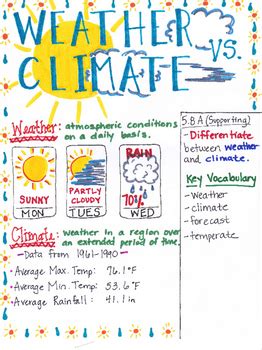 WEATHER
VS.
CLIMATE
Weather: atmospheric conditions
on a daily basis.
SUNNY
MON
PARTLY
CLOUDY
TUES
RAIN
70%
WED
Climate: weather in a region over
an extended period of time.
-Data from 1961-1990-
•Average Max. Temp: 76.1°F
•Average Min. Temp: 53.6°F
•Average Rainfall: 41.1 in
5.8A (Supporting)
-Differentiate
between weather
and climate.
Key Vocabulary
-weather
-climate
-forecast
-temperate